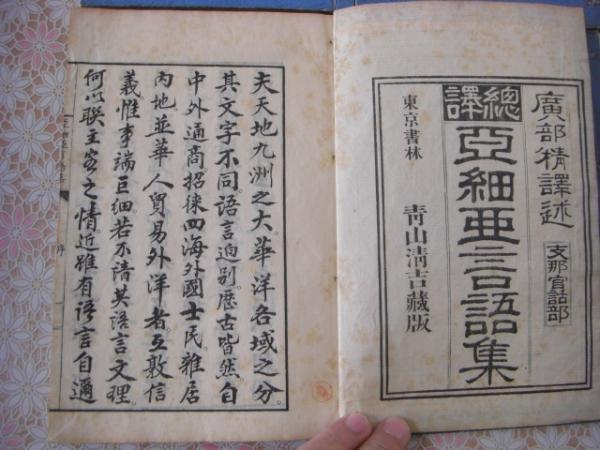 廣部精譯述
支那官話部
總譯
亞細亞言語集
東京書林
靑山淸吉藏版
夫天地九洲之大。華洋各域之分。
其文字不同。語言逈别。歷古皆然。自
中外通商招徠四海外國士民雜居
內地並華人貿易外洋者。互敦信
義惟事端巨細若不諳其語言文理。
何以聯主客之情。近雖有語言自邇